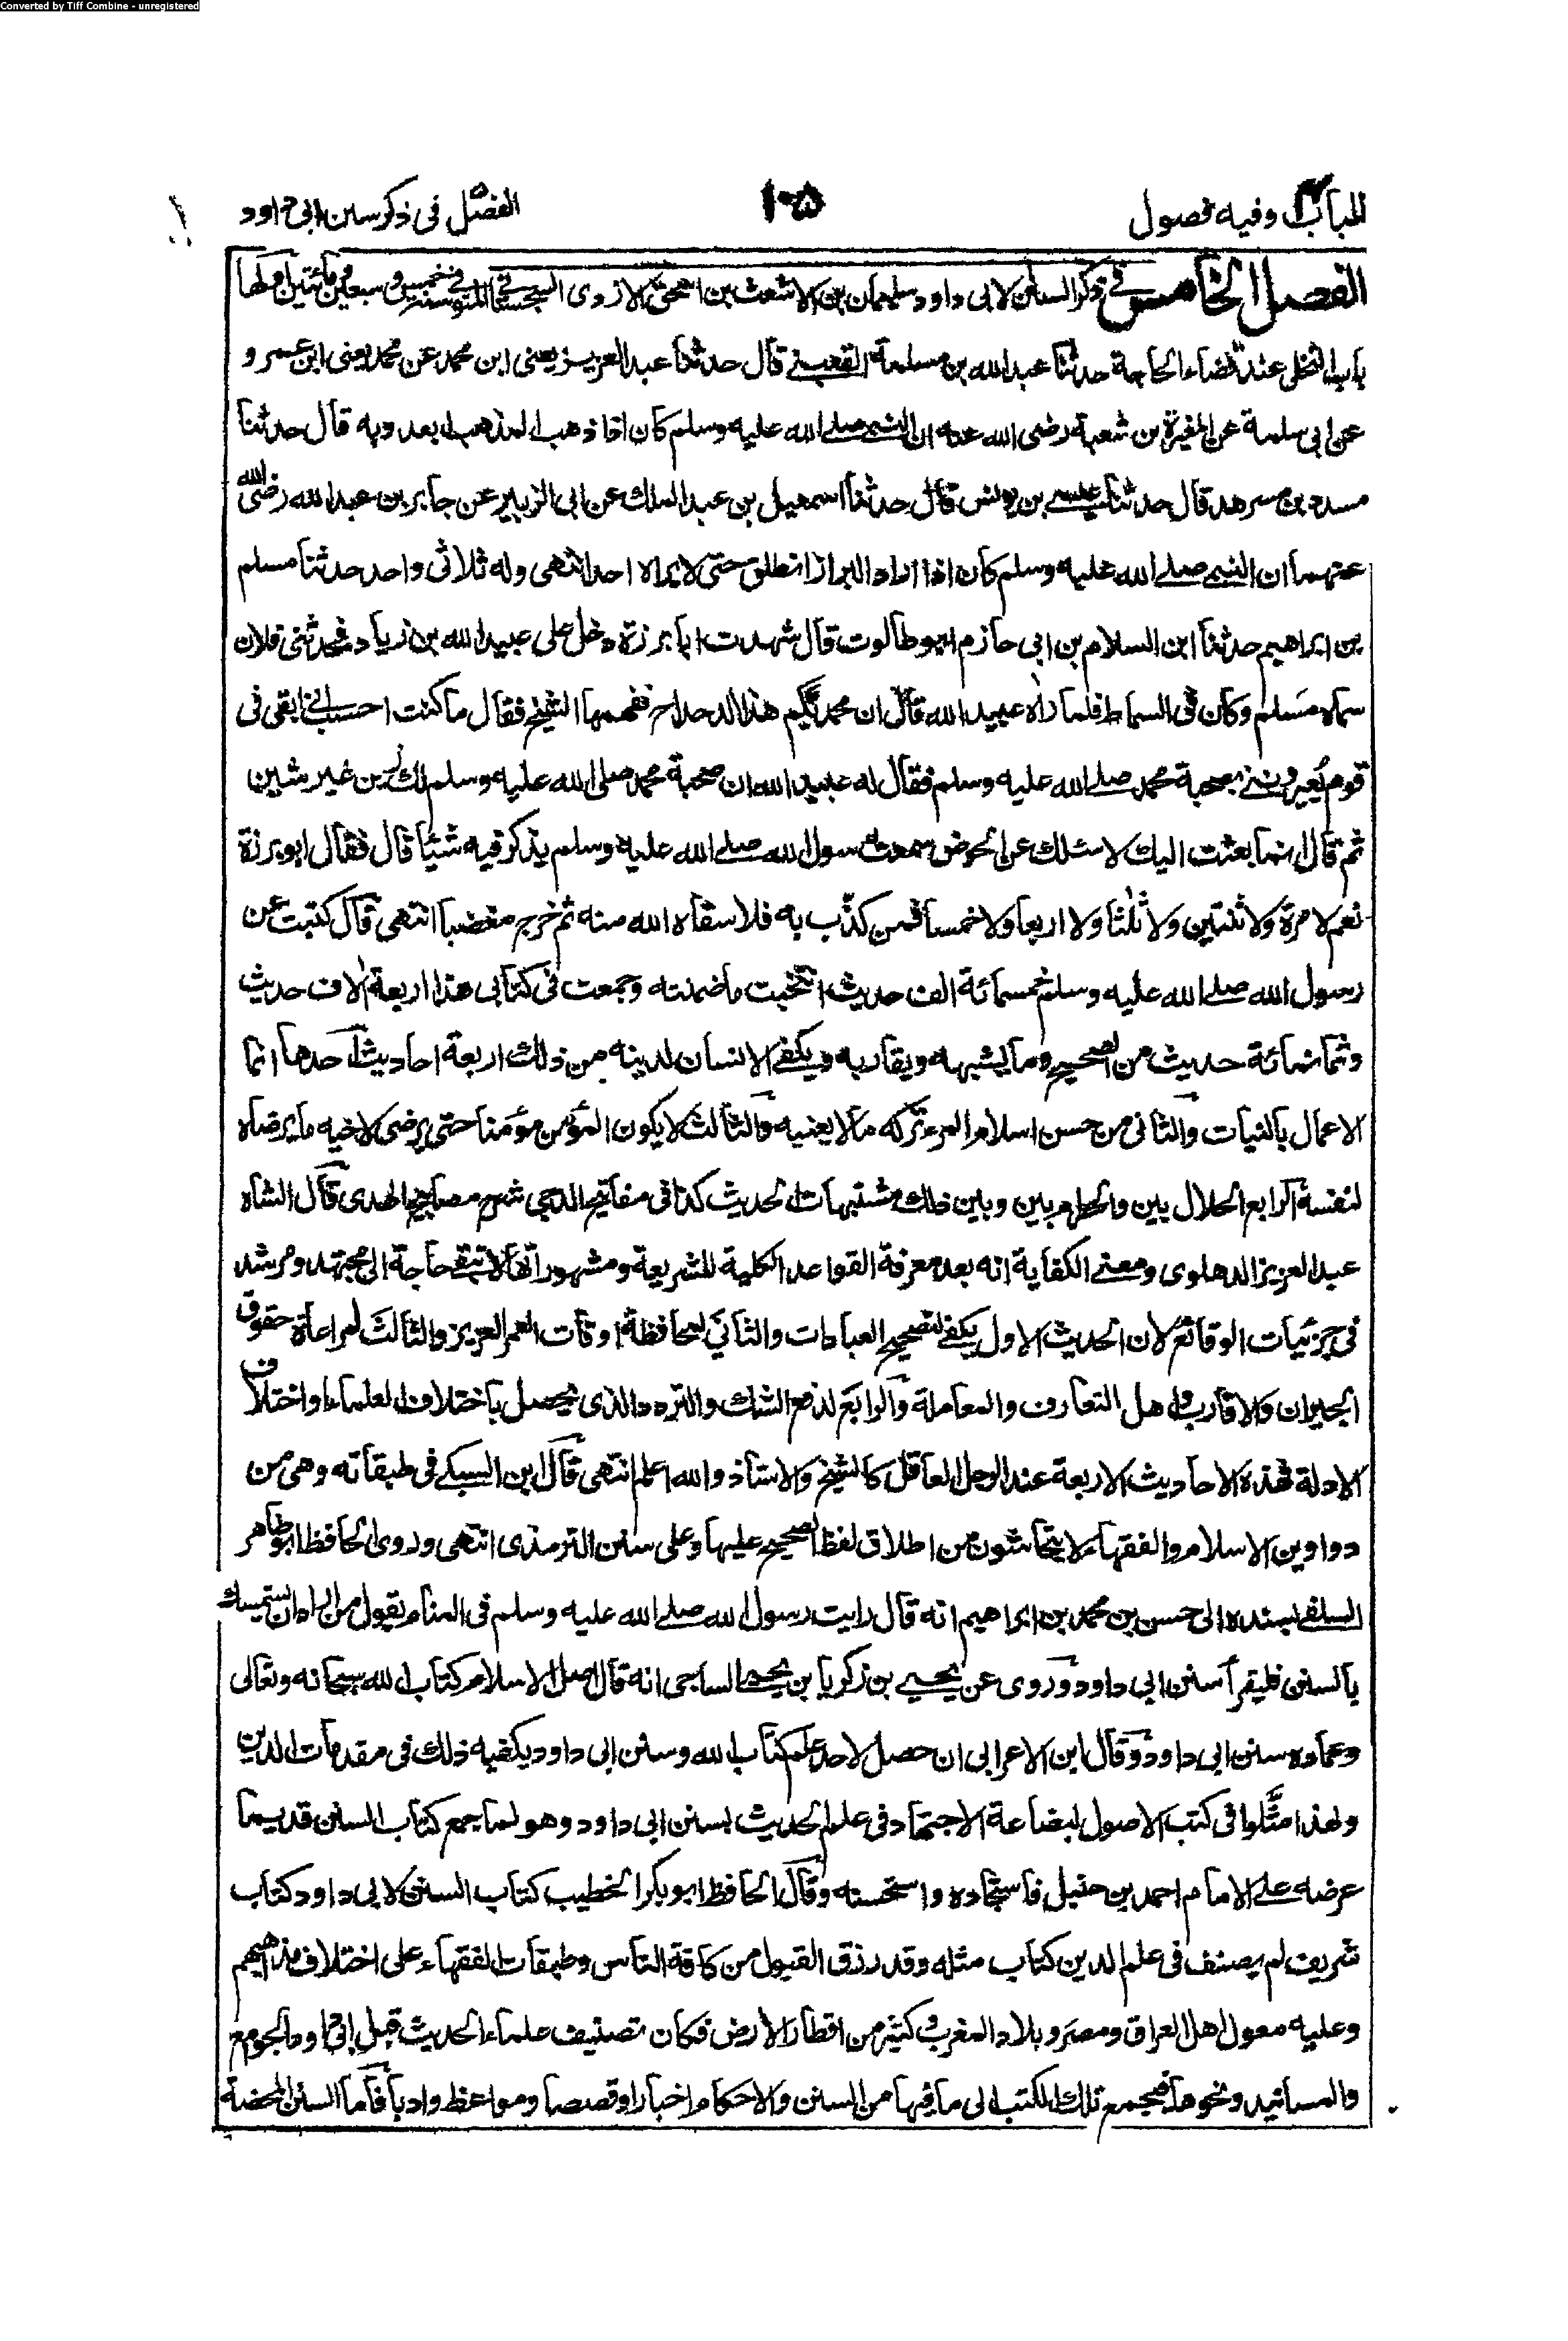 Converted by Tiff Combine - unregistered
الباب ٤ وفيه فصول
١٠٥
الفصل ٥ في ذكر سنن ابي داود
الفصل الخامس في ذكر السنن لابي داود سليمان بن الاشعث بن اسحق الازدى السجستاني المتوفى سنة خمس وسبعين ومأتين اولها
باب التخلى عند قضاء الحاجة حدثنا عبد الله بن مسلمة القعنبي قال حدثنا عبد العزيز يعنى ابن محمد عن محمد يعنى ابن عمرو
عن ابى سلمة عن المغيرة بن شعبة رضى الله عنه ان النبي صلى الله عليه وسلم كان اذا ذهب المذهب ابعد وبه قال حدثنا
مسدد بن مسرهد قال حدثنا عيسى بن يونس قال حدثنا اسمعيل بن عبد الملك عن ابى الزبير عن جابر بن عبد الله رضى الله
عنهما ان النبي صلى الله عليه وسلم كان اذا اراد البراز انطلق حتى لا يراه احد انتهى وله ثلاثى واحد حدثنا مسلم
بن ابراهيم حدثنا ابن السلام بن ابى حازم ابو طالوت قال شهدت ابا برزة دخل على عبيد الله بن زياد فحدثنى فلان
سماه مسلم وكان فى السماط فلما راٰه عبيد الله قال ان محمديكم هذا الدحداح ففهمها الشيخ فقال ما كنت احسب اني ابقى فى
قوم يُعيروننى بصحبة محمد صلى الله عليه وسلم فقال له عبيد الله ان صحبة محمد صلى الله عليه وسلم لك زين غير شين
ثم قال انما بعثت اليك لاسئلك عن الحوض سمعت رسول الله صلى الله عليه وسلم يذكر فيه شيئا قال فقال ابو برزة
نعم لا مرة ولا ثنتين ولا ثلٰثا ولا اربعا ولا خمسا فمن كذّب به فلا سقاه الله منه ثم خرج مغضبا انتهى قال كتبت عن
رسول الله صلى الله عليه وسلم خمسمائة الف حديث انتخبت ما ضمنته وجمعت فى كتابى هذا اربعة اٰلاف حديث
وثمانمائة حديث من الصحيح وما يشبهه ويقاربه ويكفى الانسان لدينه من ذلك اربعة احاديث احدها انما
الاعمال بالنيات والثانى من حسن اسلام المرء تركه ما لا يعنيه والثالث لا يكون المؤمن مؤمنا حتى يرضى لاخيه ما يرضاه
لنفسه الرابع الحلال بين والحرام بين وبين ذلك مشتبهات الحديث كذا فى مفاتيح الدجى شرح مصابيح الهدى قال الشاه
عبد العزيز الدهلوى ومعنى الكفاية انه بعد معرفة القواعد الكلية للشريعة ومشهوراتها لا تبقى حاجة الى مجتهد ومرشد
فى جزئيات الوقائع لان الحديث الاول يكفى لتصحيح العبادات والثانى لمحافظة اوقات العمر العزيز والثالث لمراعاة حقوق
الجيران والاقارب واهل التعارف والمعاملة والرابع لدفع الشك والتردد الذى يحصل باختلاف العلماء واختلاف
الادلة فهذه الاحاديث الاربعة عند الرجل العاقل كالشيخ والاستاذ والله اعلم انتهى قال ابن السبكى فى طبقاته وهى من
دواوين الاسلام والفقهاء لا يتحاشون من اطلاق لفظ الصحيح عليها وعلى سنن الترمذى انتهى وروى الحافظ ابو طاهر
السلفى بسنده الى حسن بن محمد بن ابراهيم انه قال رايت رسول الله صلى الله عليه وسلم فى المنام يقول من اراد ان يستمسك
بالسنن فليقرأ سنن ابى داود وروى عن يحيى بن زكريا بن يحيى الساجى انه قال اصل الاسلام كتاب الله سبحانه وتعالى
وعماده سنن ابى داود وقال ابن الاعرابى ان حصل لاحد علم كتاب الله وسنن ابى داود يكفيه ذلك فى مقدمات الدين
ولهذا مثّلوا فى كتب الاصول لبضاعة الاجتهاد فى علم الحديث بسنن ابى داود وهو لما جمع كتاب السنن قديما
عرضه على الامام احمد بن حنبل فاستجاده واستحسنه وقال الحافظ ابو بكر الخطيب كتاب السنن لابى داود كتاب
شريف لم يصنف فى علم الدين كتاب مثله وقد رزق القبول من كافة الناس وطبقات الفقهاء على اختلاف مذاهبهم
وعليه معول اهل العراق ومصر وبلاد المغرب وكثير من اقطار الارض فكان تصنيف علماء الحديث قبل ابى داود الجوامع
والمسانيد ونحوها فجمع تلك الكتب الى ما فيها من السنن والاحكام اخبارا وقصصا ومواعظ وادبا فاما السنن المحضة